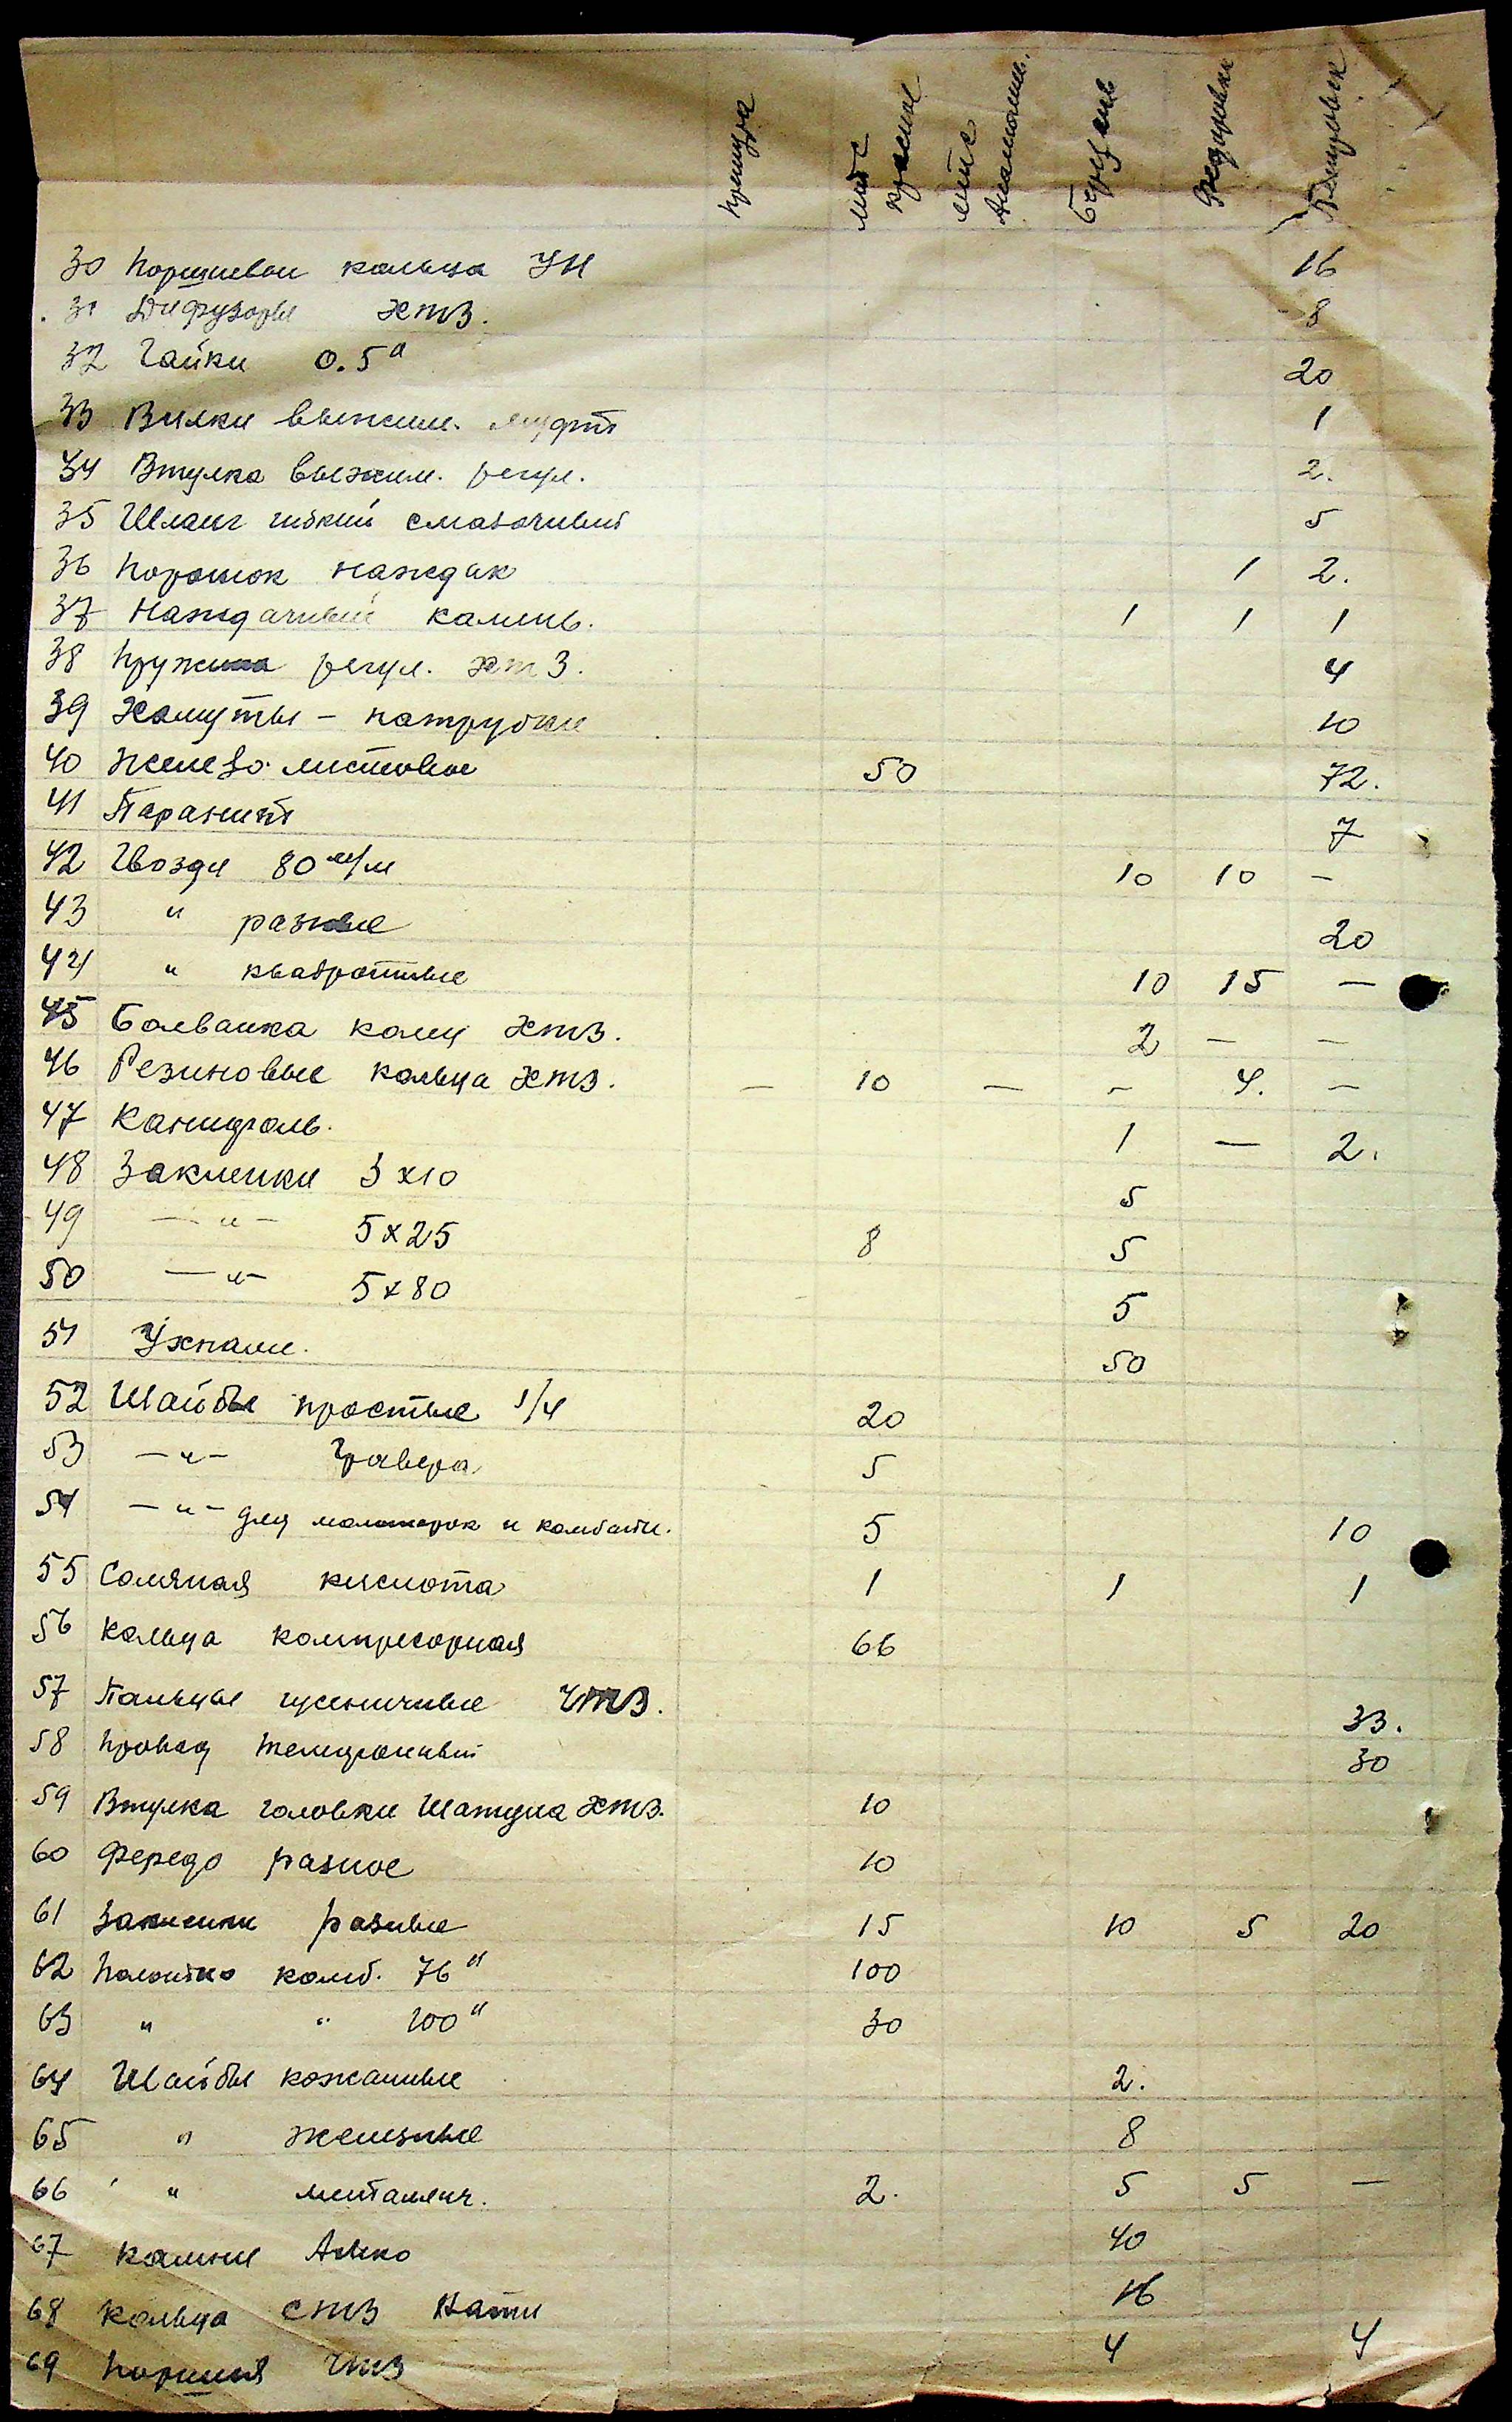 мтс красное
мтс
30 Поршневои кольца УН 16
31 Дифузоры ХТЗ. 8
32 Гайки 0.5" 20
33 Вилки выжим. муфт 1
34 Втулка выжим. регул. 2.
35 Шланг гибкий смазочный 5
36 Порошок наждак 1 2.
37 Наждачный камень. 1 1 1
38 Пружина регул. ХТЗ. 4
39 Хомуты - патрубки 10
40 Железо листовое 50 72.
41 Паранит 7
42 Гвозди 80 м/м 10 10 -
43 " разные 20
44 " квадротные 10 15 -
45 Болванка колец ХТЗ. 2 - -
46 Резиновые кольца ХТЗ. - 10 - - 4. -
47 Канифоль. 1 - 2.
48 Заклепки 3x10 5
49 -"- 5x25 8 5
50 -"- 5x80 5
51 50
52 Шайбы простые 1/4 20
53 -"- Гравера 5
54 -"- для молотилок и комбайн. 5 10
55 Соляная кислота 1 1 1
56 Кольца компресорная 66
57 Пальцы гусеничные ЧТЗ. 33.
58 Провод телефонный 30
59 Втулка головки шатуна ХТЗ. 10
60 Ферадо разное 10
61 Заклепки разные 15 10 5 20
62 Полотно комб. 76" 100
63 " " 100" 30
64 Шайбы кожанные 2.
65 " железные 8
66 " металич. 2. 5 5 -
67 40
68 Кольца СТЗ Нати 16
69 Поршня ЧТЗ 4 4